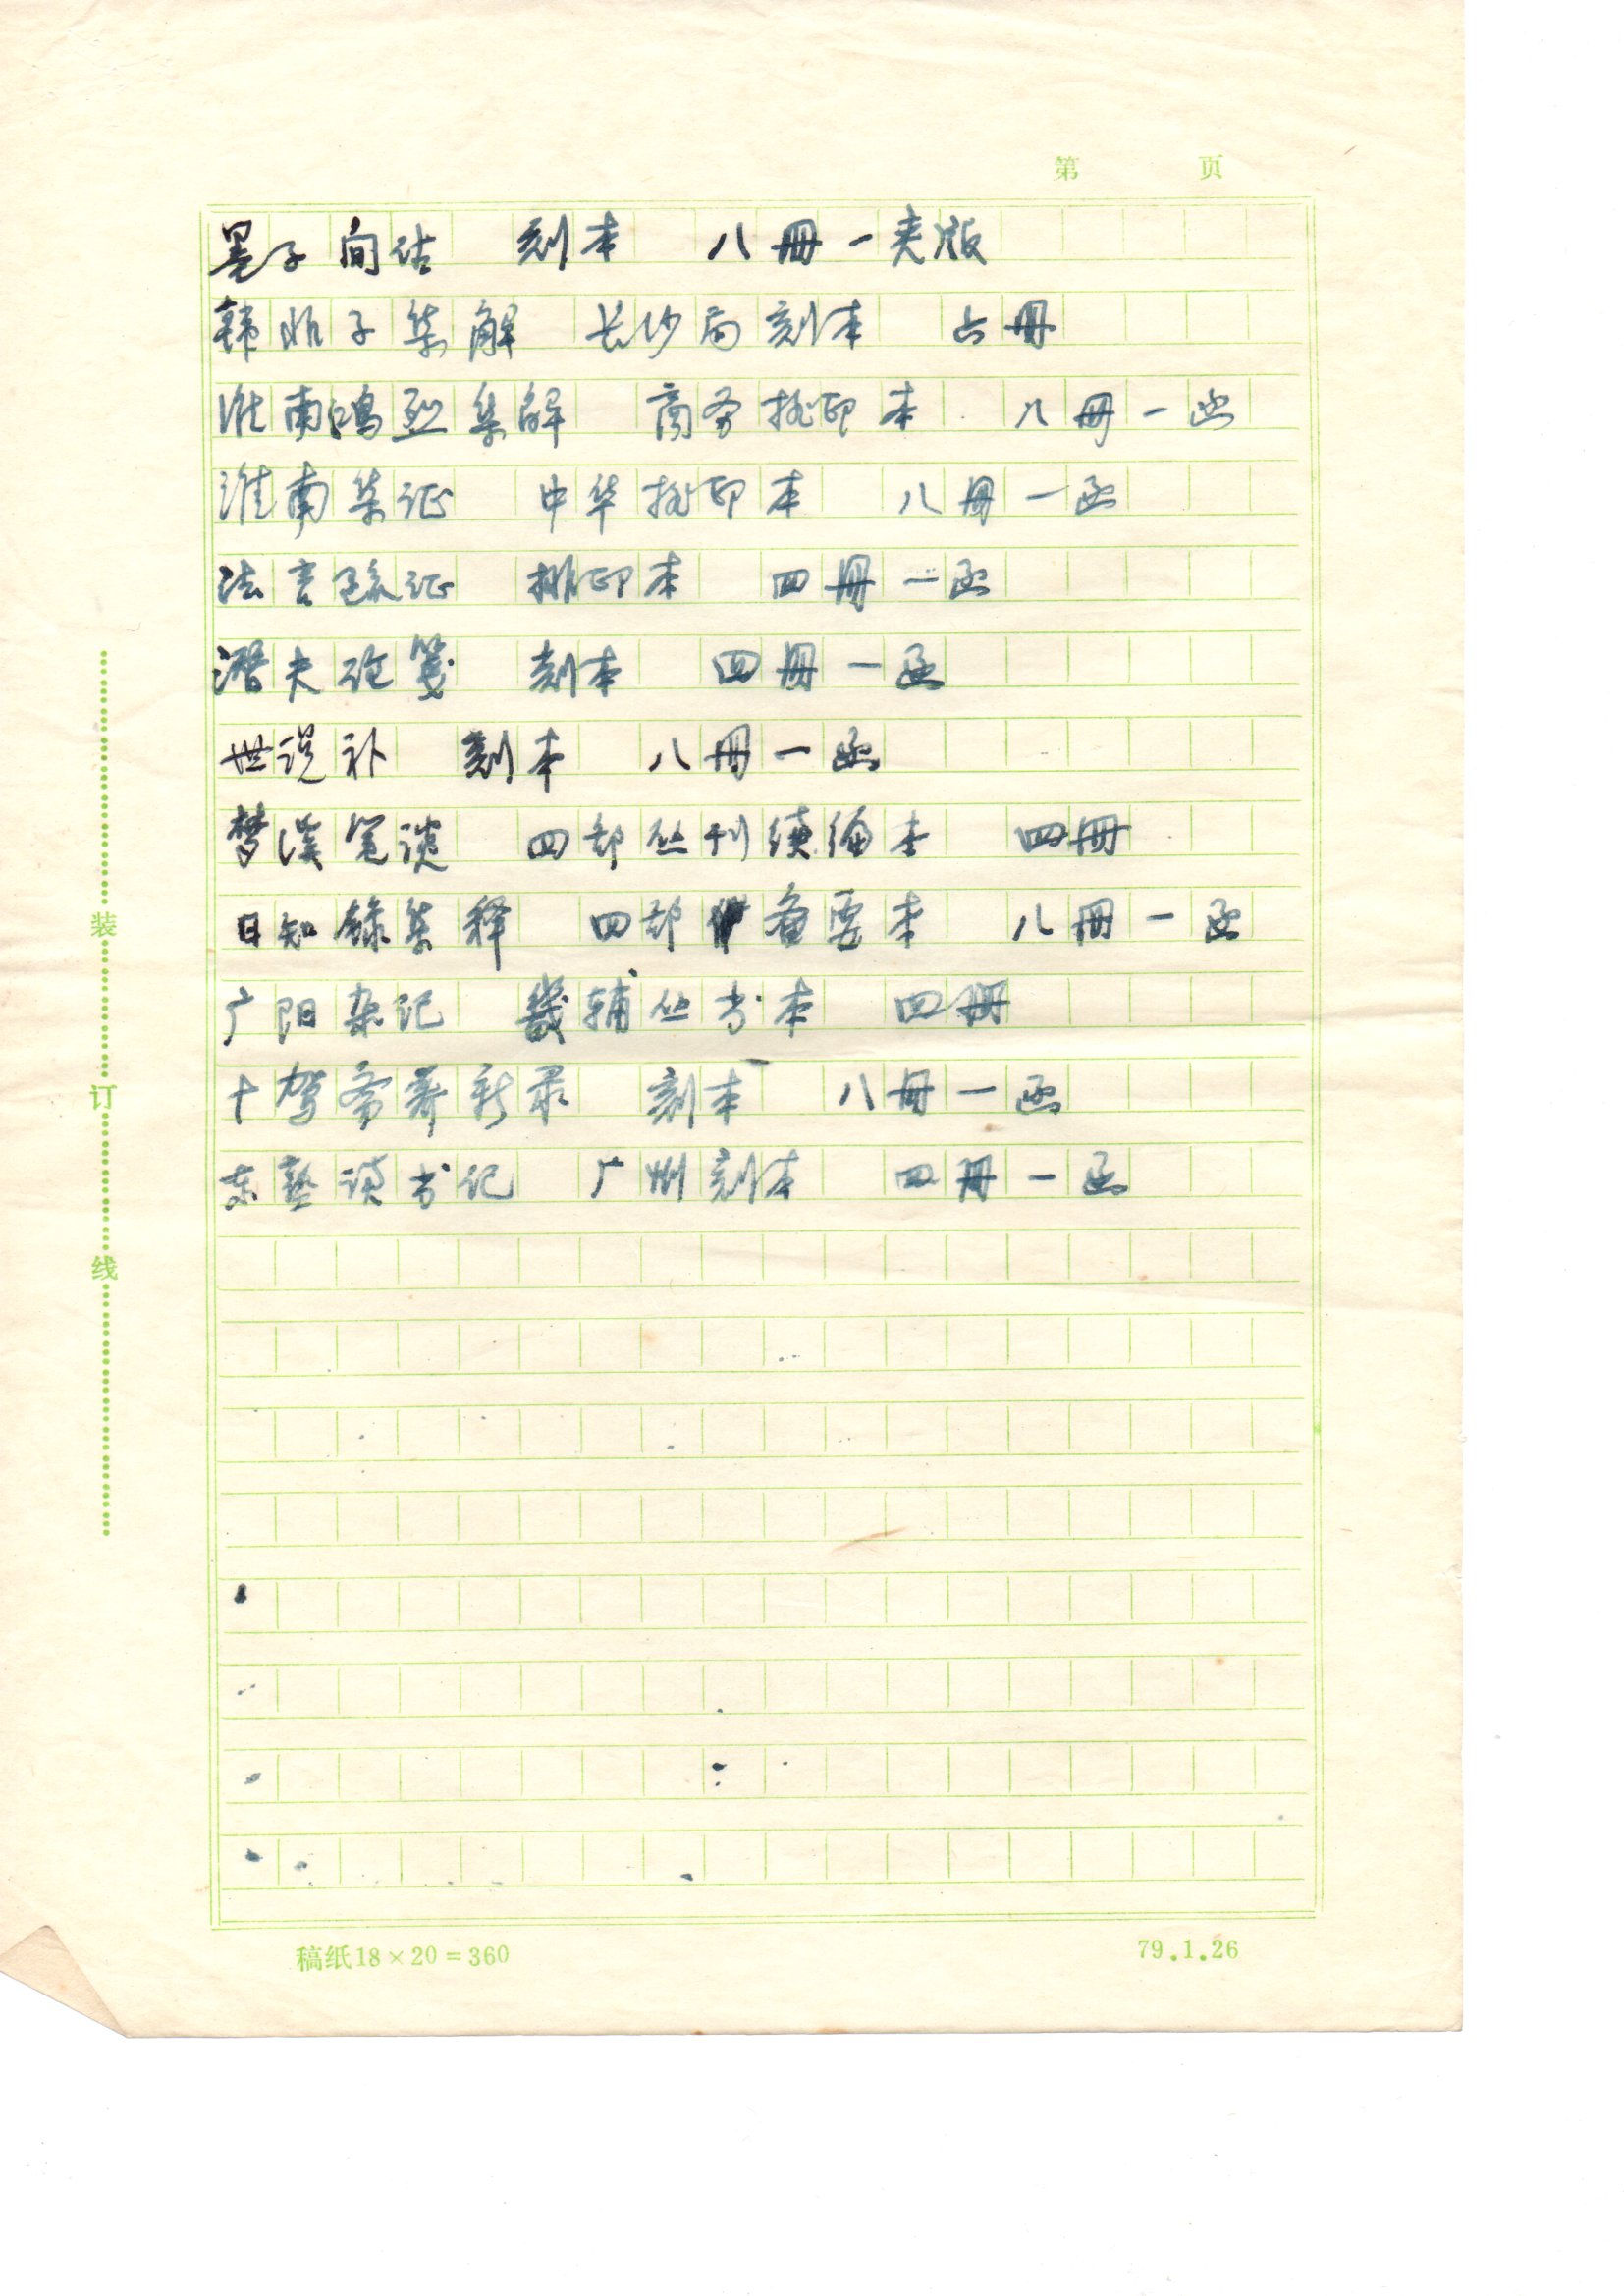 第 页
墨子间诂 刻本 八冊一夹版
韩非子集解 长沙局刻本 六冊
淮南鸿烈集解 商务排印本 八冊一函
淮南集证 中华排印本 八冊一函
法言疏证 排印本 四冊一函
潜夫论笺 刻本 四冊一函
世说补 刻本 八冊一函
梦溪笔谈 四部丛刊续编本 四冊
日知録集释 四部备要本 八冊一函
广阳杂记 畿辅丛书本 四冊
十驾斋养新录 刻本 八冊一函
东塾读书记 广州刻本 四冊一函
装
订
线
稿纸18×20=360 79.1.26